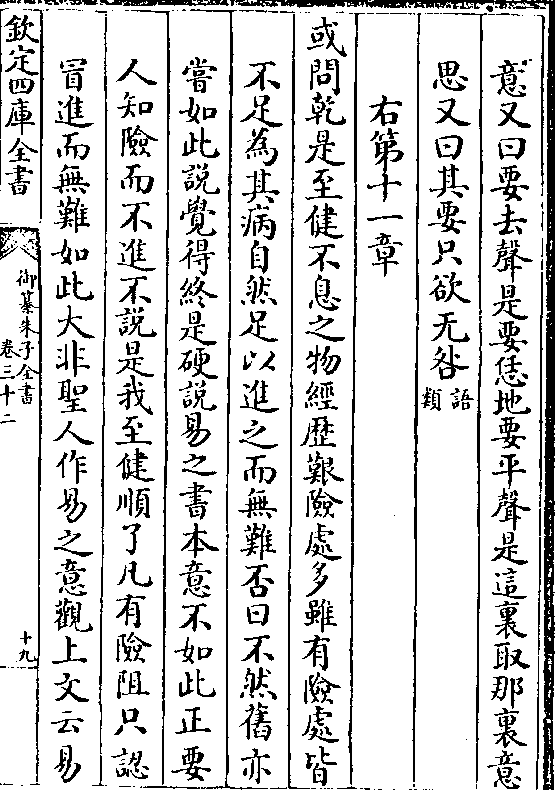 意又曰要去聲是要恁地要平聲是這裏取那裏意
思又曰其要只欲无咎語類
右第十一章
或問乾是至健不息之物經歷艱險處多雖有險處皆
不足為其病自然足以進之而無難否曰不然舊亦
嘗如此說覺得終是硬說易之書本意不如此正要
人知險而不進不說是我至健順了凡有險阻只認
冒進而無難如此大非聖人作易之意觀上文云易
欽定四庫全書
御纂朱子全書
卷三十二
十九